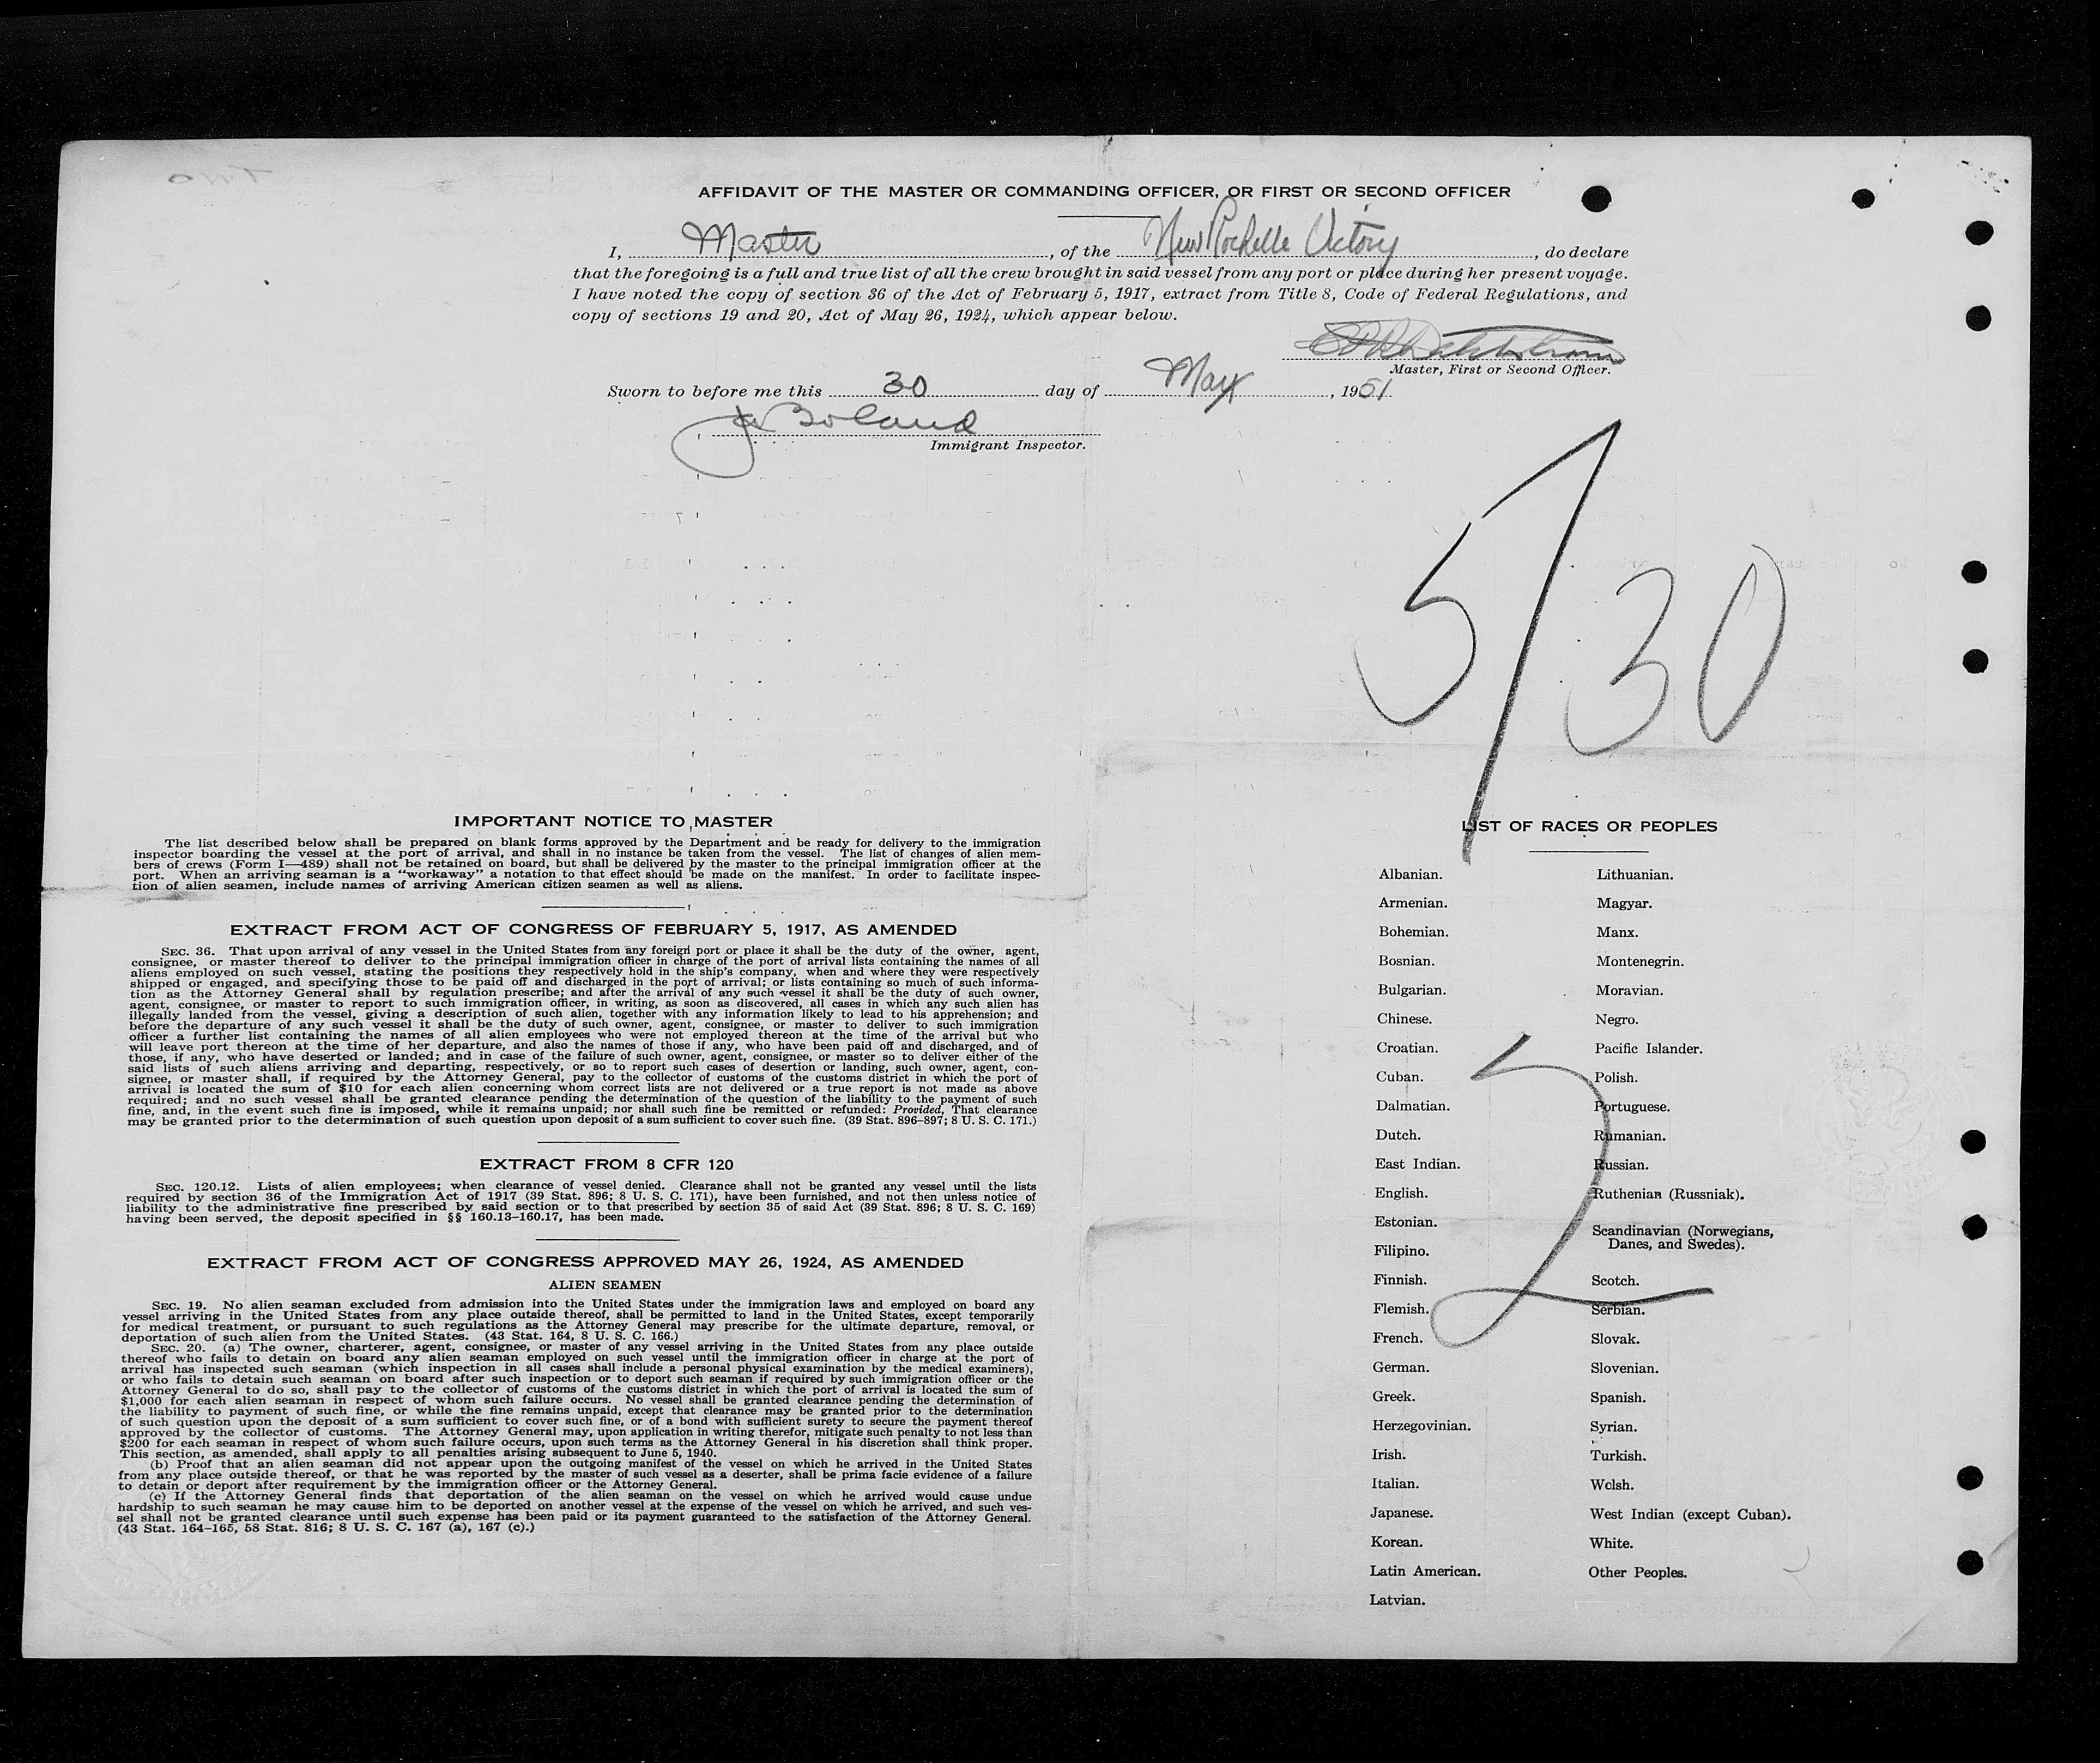 AFFIDAVIT OF THE MASTER OR COMMANDING OFFICER, OR FIRST OR SECOND OFFICER
I, Master, of the New Rochelle Victory, do declare
that the foregoing is a full and true list of all the crew brought in said vessel from any port or place during her present voyage.
I have noted the copy of section 36 of the Act of February 5, 1917, extract from Title 8, Code of Federal Regulations, and
copy of sections 19 and 20, Act of May 26, 1924, which appear below.
Master, First or Second Officer.
Sworn to before me this 30 day of May, 1951
Boland
Immigrant Inspector.
5/30
IMPORTANT NOTICE TO MASTER
The list described below shall be prepared on blank forms approved by the Department and be ready for delivery to the immigration
inspector boarding the vessel at the port of arrival, and shall in no instance be taken from the vessel. The list of changes of alien mem-
bers of crews (Form I—489) shall not be retained on board, but shall be delivered by the master to the principal immigration officer at the
port. When an arriving seaman is a "workaway" a notation to that effect should be made on the manifest. In order to facilitate inspec-
tion of alien seamen, include names of arriving American citizen seamen as well as aliens.
EXTRACT FROM ACT OF CONGRESS OF FEBRUARY 5, 1917, AS AMENDED
SEC. 36. That upon arrival of any vessel in the United States from any foreign port or place it shall be the duty of the owner, agent,
consignee, or master thereof to deliver to the principal immigration officer in charge of the port of arrival lists containing the names of all
aliens employed on such vessel, stating the positions they respectively hold in the ship's company, when and where they were respectively
shipped or engaged, and specifying those to be paid off and discharged in the port of arrival; or lists containing so much of such informa-
tion as the Attorney General shall by regulation prescribe; and after the arrival of any such vessel it shall be the duty of such owner,
agent, consignee, or master to report to such immigration officer, in writing, as soon as discovered, all cases in which any such alien has
illegally landed from the vessel, giving a description of such alien, together with any information likely to lead to his apprehension; and
before the departure of any such vessel it shall be the duty of such owner, agent, consignee, or master to deliver to such immigration
officer a further list containing the names of all alien employees who were not employed thereon at the time of the arrival but who
will leave port thereon at the time of her departure, and also the names of those if any, who have been paid off and discharged, and of
those, if any, who have deserted or landed; and in case of the failure of such owner, agent, consignee, or master so to deliver either of the
said lists of such aliens arriving and departing, respectively, or so to report such cases of desertion or landing, such owner, agent, con-
signee, or master shall, if required by the Attorney General, pay to the collector of customs of the customs district in which the port of
arrival is located the sum of $10 for each alien concerning whom correct lists are not delivered or a true report is not made as above
required; and no such vessel shall be granted clearance pending the determination of the question of the liability to the payment of such
fine, and, in the event such fine is imposed, while it remains unpaid; nor shall such fine be remitted or refunded: Provided, That clearance
may be granted prior to the determination of such question upon deposit of a sum sufficient to cover such fine. (39 Stat. 896–897; 8 U. S. C. 171.)
EXTRACT FROM 8 CFR 120
SEC. 120.12. Lists of alien employees; when clearance of vessel denied. Clearance shall not be granted any vessel until the lists
required by section 36 of the Immigration Act of 1917 (39 Stat. 896; 8 U. S. C. 171), have been furnished, and not then unless notice of
liability to the administrative fine prescribed by said section or to that prescribed by section 35 of said Act (39 Stat. 896; 8 U. S. C. 169)
having been served, the deposit specified in §§ 160.13–160.17, has been made.
EXTRACT FROM ACT OF CONGRESS APPROVED MAY 26, 1924, AS AMENDED
ALIEN SEAMEN
SEC. 19. No alien seaman excluded from admission into the United States under the immigration laws and employed on board any
vessel arriving in the United States from any place outside thereof, shall be permitted to land in the United States, except temporarily
for medical treatment, or pursuant to such regulations as the Attorney General may prescribe for the ultimate departure, removal, or
deportation of such alien from the United States. (43 Stat. 164, 8 U. S. C. 166.)
SEC. 20. (a) The owner, charterer, agent, consignee, or master of any vessel arriving in the United States from any place outside
thereof who fails to detain on board any alien seaman employed on such vessel until the immigration officer in charge at the port of
arrival has inspected such seaman (which inspection in all cases shall include a personal physical examination by the medical examiners),
or who fails to detain such seaman on board after such inspection or to deport such seaman if required by such immigration officer or the
Attorney General to do so, shall pay to the collector of customs of the customs district in which the port of arrival is located the sum of
$1,000 for each alien seaman in respect of whom such failure occurs. No vessel shall be granted clearance pending the determination of
the liability to payment of such fine, or while the fine remains unpaid, except that clearance may be granted prior to the determination
of such question upon the deposit of a sum sufficient to cover such fine, or of a bond with sufficient surety to secure the payment thereof
approved by the collector of customs. The Attorney General may, upon application in writing therefor, mitigate such penalty to not less than
$200 for each seaman in respect of whom such failure occurs, upon such terms as the Attorney General in his discretion shall think proper.
This section, as amended, shall apply to all penalties arising subsequent to June 5, 1940.
(b) Proof that an alien seaman did not appear upon the outgoing manifest of the vessel on which he arrived in the United States
from any place outside thereof, or that he was reported by the master of such vessel as a deserter, shall be prima facie evidence of a failure
to detain or deport after requirement by the immigration officer or the Attorney General.
(c) If the Attorney General finds that deportation of the alien seaman on the vessel on which he arrived would cause undue
hardship to such seaman he may cause him to be deported on another vessel at the expense of the vessel on which he arrived, and such ves-
sel shall not be granted clearance until such expense has been paid or its payment guaranteed to the satisfaction of the Attorney General.
(43 Stat. 164–165, 58 Stat. 816; 8 U. S. C. 167 (a), 167 (c).)
LIST OF RACES OR PEOPLES
Albanian.
Armenian.
Bohemian.
Bosnian.
Bulgarian.
Chinese.
Croatian.
Cuban.
Dalmatian.
Dutch.
East Indian.
English.
Estonian.
Filipino.
Finnish.
Flemish.
French.
German.
Greek.
Herzegovinian.
Irish.
Italian.
Japanese.
Korean.
Latin American.
Latvian.
Lithuanian.
Magyar.
Manx.
Montenegrin.
Moravian.
Negro.
Pacific Islander.
Polish.
Portuguese.
Rumanian.
Russian.
Ruthenian (Russniak).
Scandinavian (Norwegians,
Danes, and Swedes).
Scotch.
Serbian.
Slovak.
Slovenian.
Spanish.
Syrian.
Turkish.
Welsh.
West Indian (except Cuban).
White.
Other Peoples.
2